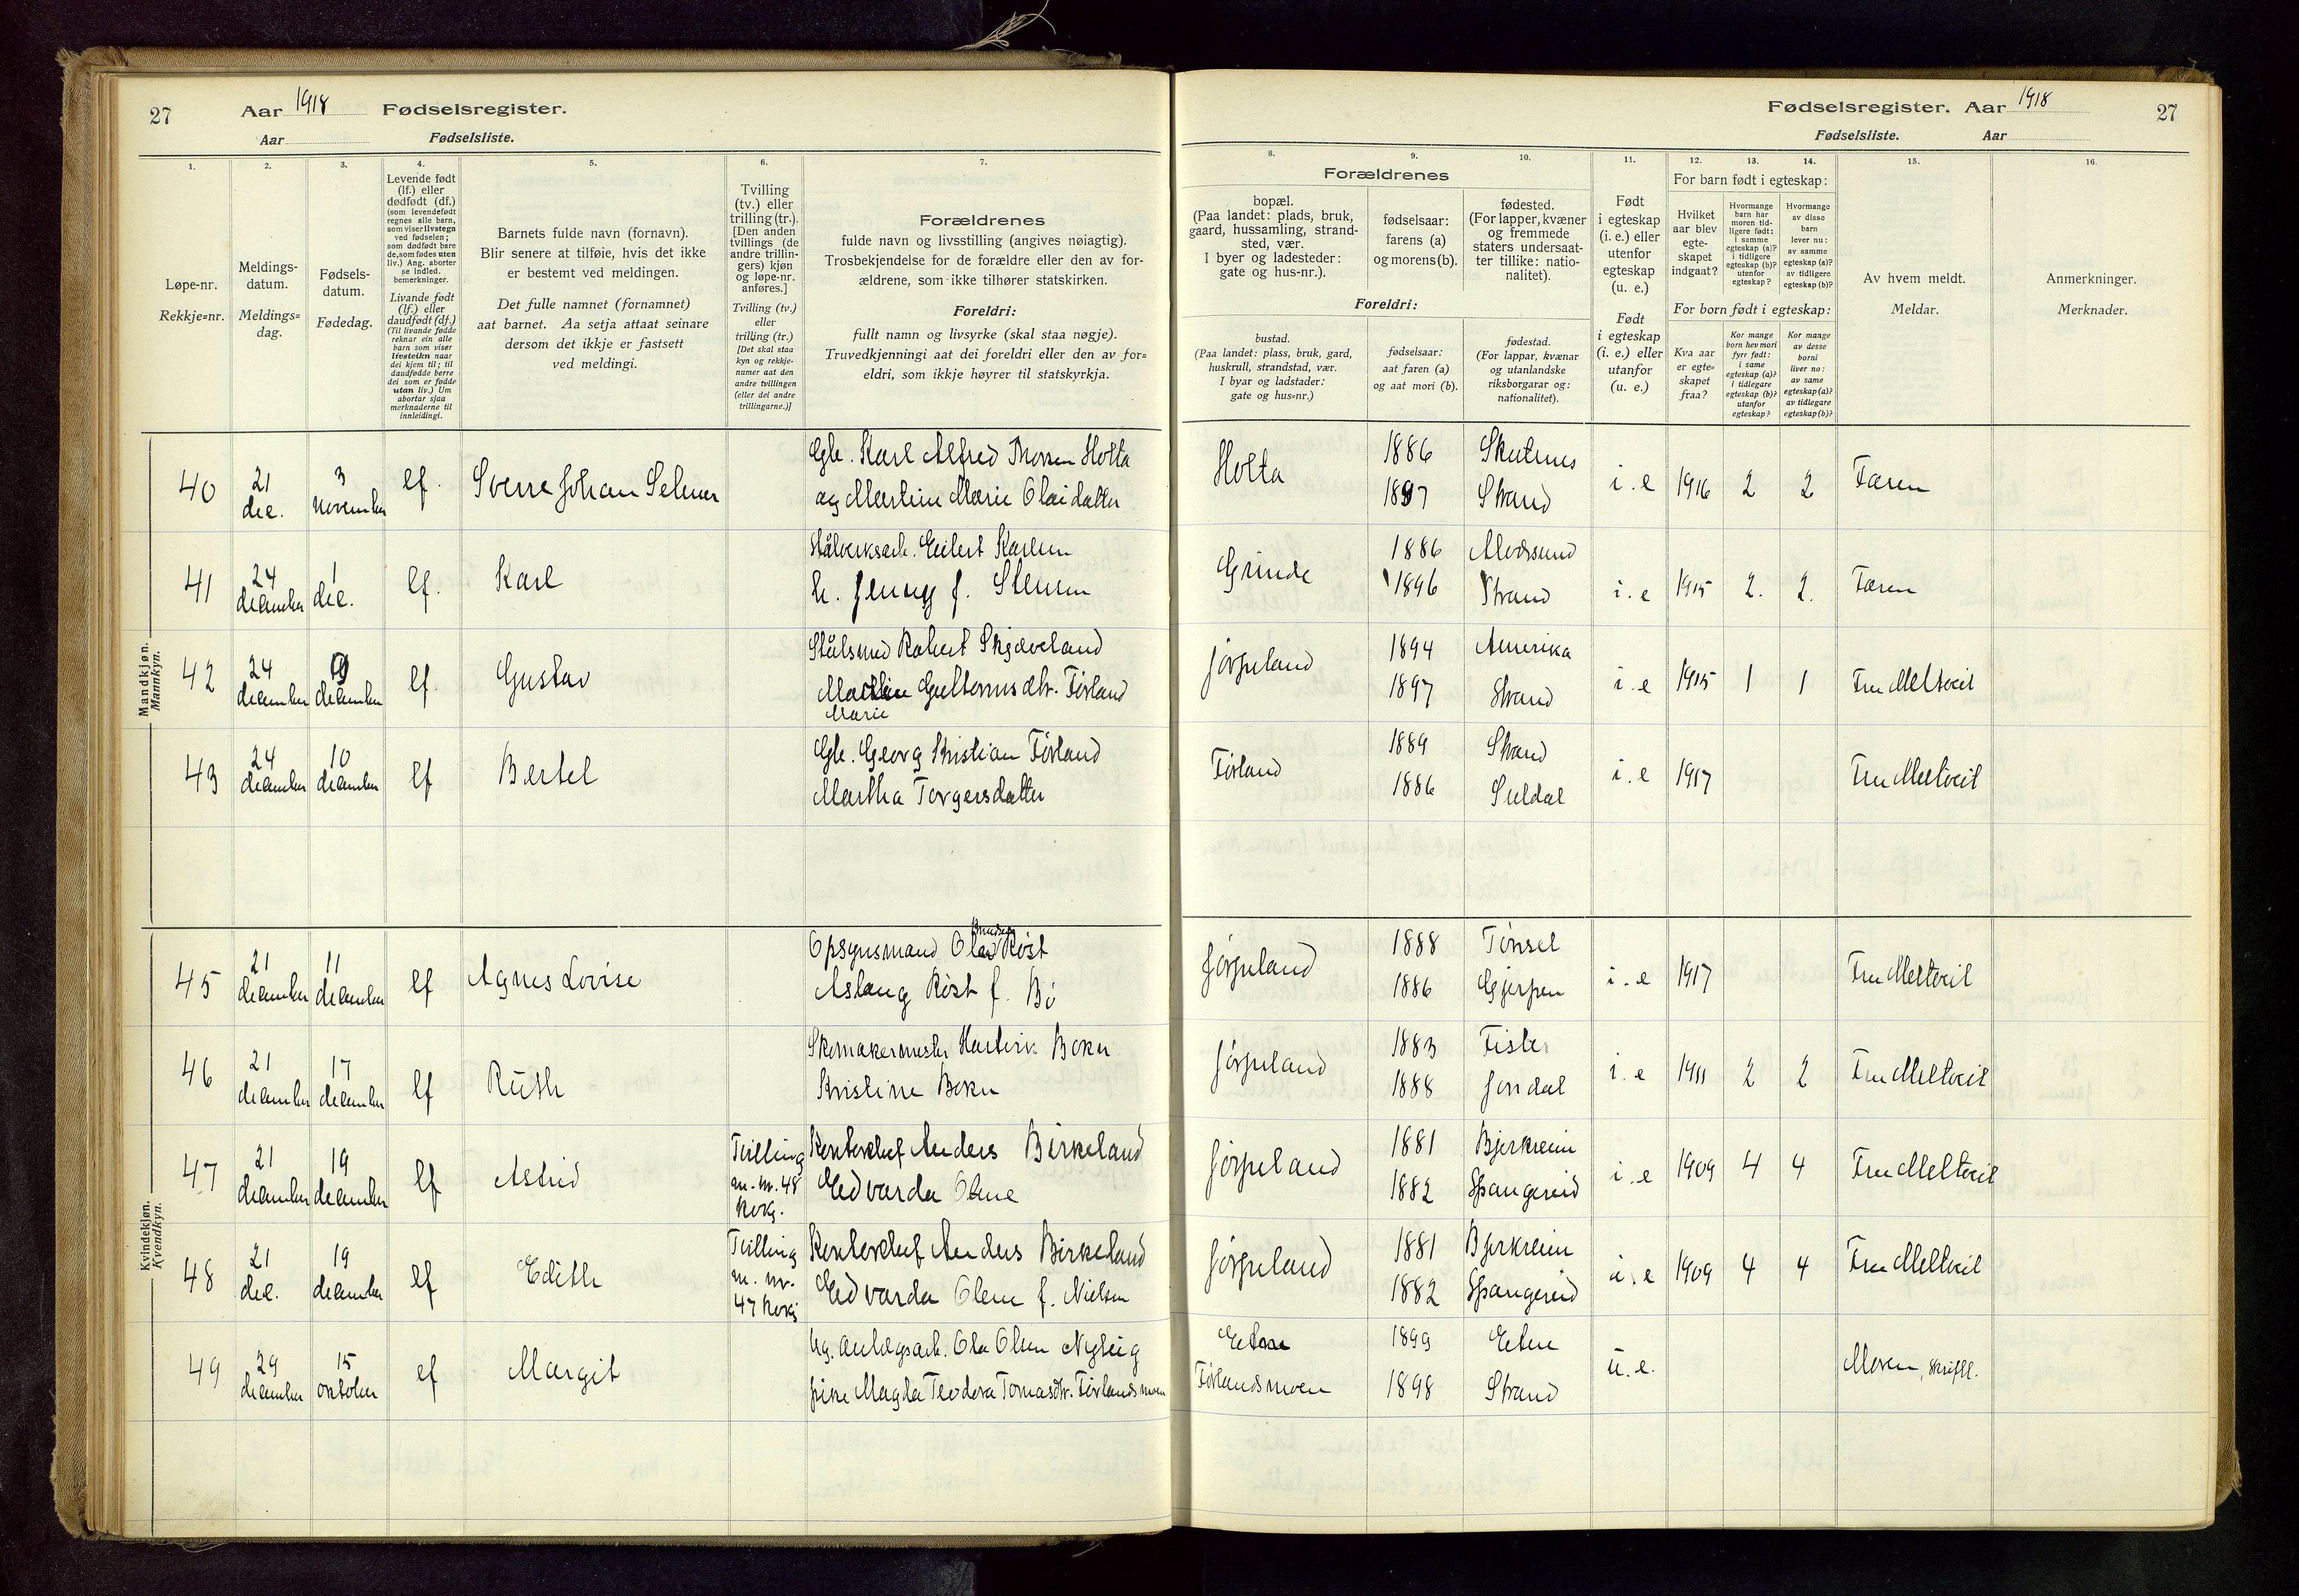 27 Aar 1918 Fødselsregister.
Aar Fødselsliste.
1. 2. 3. 4. 5. 6. 7.
Løpe-nr.
Rekkje=nr.
Meldings-
datum.
Meldings=
dag.
Fødsels-
datum.
Fødedag.
Levende født
(lf.) eller
dødfødt (df.)
(som levendefødt
regnes alle barn,
som viser livstegn
ved fødselen;
som dødfødt bare
de, som fødes uten
liv.) Ang. aborter
se indled.
bemerkninger.
Livande født
(lf.) eller
daudfødt (df.)
(Til livande fødde
reknar ein alle
barn som viser
livsteikn naar
dei kjem til; til
daudfødde berre
dei som er fødde
utan liv.) Um
abortar sjaa
merknaderne til
innleidingi.
Barnets fulde navn (fornavn).
Blir senere at tilføie, hvis det ikke
er bestemt ved meldingen.
Det fulle namnet (fornamnet)
aat barnet. Aa setja attaat seinare
dersom det ikkje er fastsett
ved meldingi.
Tvilling
(tv.) eller
trilling (tr.).
[Den anden
tvillings (de
andre trillin-
gers) kjøn
og løpe-nr.
anføres.]
Tvilling (tv.)
eller
trilling (tr.)
[Det skal staa
kyn og rekkje-
numer aat den
andre tvillingen
(eller dei andre
trillingarne.)]
Forældrenes
fulde navn og livsstilling (angives nøiagtig).
Trosbekjendelse for de forældre eller den av for-
ældrene, som ikke tilhører statskirken.
Foreldri:
fullt namn og livsyrke (skal staa nøgje).
Truvedkjenningi aat dei foreldri eller den av for=
eldri, som ikkje høyrer til statskyrkja.
Mandkjøn.
Mannkyn.
40 21 dec. 3 november lf. Sverre Johan Selmer Gbr. Karl Alfred Thorsen Holta
og Martine Marie Olaidatter
41 24 december 1 dec. lf. Karl Stålverksarb. Eilert Karlsen
h. Jenny f. Stensen
42 24 december 9 december lf. Gustav Stålsmed Robert Skjæveland
Guttormsdtr. Førland
Marie
43 24 december 10 december lf Bertel Gbr. Georg Kristian Førland
Martha Torgersdatter
Kvindekjøn.
Kvendkyn.
45 21 december 11 december lf Agnes Lovise Opsynsmand Olav Røst
Aslaug Røst f. Bö
46 21 december 17 december lf Ruth Skomakermester Boku
Kristine Boku
47 21 december 19 december lf Astrid Tvilling m. nr. 48 Kontorchef Anders Birkeland
Edvarda Olene
48 21 dec. 19 december lf Edith Tvilling m. nr. 47 Kontorchef Anders Birkeland
Edvarda Olene f. Nielsen
49 29 december 15 oktober lf Margit Ug. anlægsarb. Ola Olsen
pike Magda Teodora Tomasdtr. Førlandsmoen
Fødselsregister. Aar 1918 27
Fødselsliste. Aar
8. 9. 10. 11. 12. 13. 14. 15. 16.
Forældrenes
bopæl.
(Paa landet: plads, bruk,
gaard, hussamling, strand-
sted, vær.
I byer og ladesteder:
gate og hus-nr.).
fødselsaar:
farens (a)
og morens (b).
fødested.
(For lapper, kvæner
og fremmede
staters undersaat-
ter tillike: natio-
nalitet).
Foreldri:
bustad.
(Paa landet: plass, bruk, gard,
huskrull, strandstad, vær.
I byar og ladstader:
gate og hus=nr.)
fødselsaar:
aat faren (a)
og aat mori (b).
fødestad.
(For lappar, kvænar
og utanlandske
riksborgarar og:
nationalitet).
Født
i egteskap
(i. e.) eller
utenfor
egteskap
(u. e.)
Født
i egteskap
(i. e.) eller
utanfor
(u. e.)
For barn født i egteskap:
Hvilket
aar blev
egte-
skapet
indgaat?
Hvormange
barn har
moren tid-
ligere født:
i samme
egteskap (a)?
i tidligere
egteskap (b)?
utenfor
egteskap?
Hvormange
av disse
barn
lever nu:
av samme
egteskap (a)?
av tidligere
egteskap (b)?
For born født i egteskap:
Kva aar
er egte=
skapet
fraa?
Kor mange
born hev mori
fyrr født:
i same
egteskap (a)?
i tidlegare
egteskap (b)?
utanfor
egteskap?
Kor mange
av desse
borni
liver no:
av same
egteskap (a)?
av tidlegare
egteskap (b)?
Av hvem meldt.
Meldar.
Anmerkninger.
Merknader.
Holta 1886 Skutnes i. e 1916 2 2 Faren
1897 Strand
Grinde 1886 i. e 1915 2. 2. Faren
1896 Strand
Jørpeland 1894 Amerika i. e 1915 1 1 Fru Meltveit
1897 Strand
Førland 1889 Strand i. e 1917 Fru Meltveit
1886 Suldal
Jørpeland 1888 Tönset i. e 1917 Fru Meltveit
1886 Gjerpen
Jørpeland 1883 Fister i. e 1911 2 2 Fru Meltveit
1888 Jondal
Jørpeland 1881 Bjerkreim i. e 1909 4 4 Fru Meltveit
1882 Spangereid
Jørpeland 1881 Bjerkreim i. e 1909 4 4 Fru Meltveit
1882 Spangereid
Etne 1899 Etne u. e. Moren, skriftl.
Førlandsmoen 1898 Strand